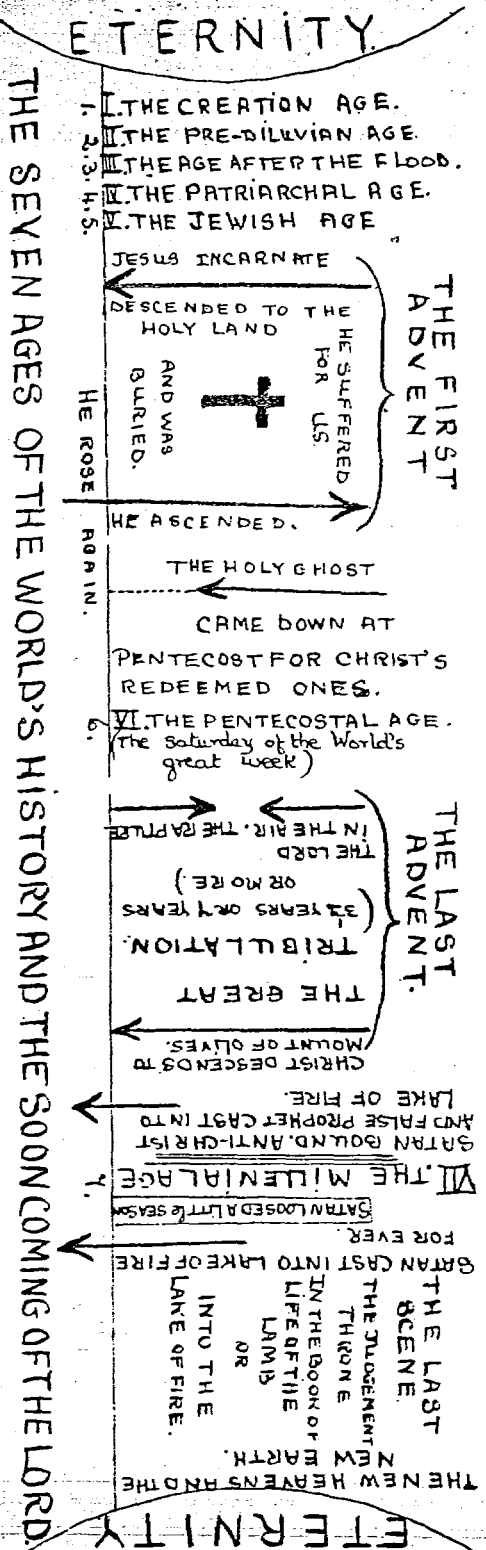 ETERNITY.
THE SEVEN AGES OF THE WORLD'S HISTORY AND THE SOON COMING OF THE LORD.
1. I. THE CREATION AGE.
2. II. THE PRE-DILUVIAN AGE.
3. III. THE AGE AFTER THE FLOOD.
4. IV. THE PATRIARCHAL AGE.
5. V. THE JEWISH AGE
THE FIRST
ADVENT
JESUS INCARNATE
DESCENDED TO THE
HOLY LAND
HE SUFFERED
FOR US.
AND WAS
BURIED.
HE ROSE AGAIN.
HE ASCENDED.
THE HOLY GHOST
CAME DOWN AT
PENTECOST FOR CHRIST'S
REDEEMED ONES.
6. VI. THE PENTECOSTAL AGE.
(The Saturday of the World's
great week)
THE LAST
ADVENT.
THE LORD
IN THE AIR. THE RAPTURE
THE GREAT
TRIBULATION.
(3½ YEARS OR 7 YEARS
OR MORE.)
CHRIST DESCENDS TO
MOUNT OF OLIVES.
SATAN BOUND. ANTI-CHRIST
AND FALSE PROPHET CAST INTO
LAKE OF FIRE.
7. VII. THE MILLENIAL AGE
SATAN LOOSED A LITTLE SEASON
SATAN CAST INTO LAKE OF FIRE
FOR EVER.
THE LAST
SCENE.
THE JUDGEMENT
THRONE
IN THE BOOK OF
LIFE OF THE
LAMB
OR
INTO THE
LAKE OF FIRE.
THE NEW HEAVENS AND THE
NEW EARTH.
ETERNITY